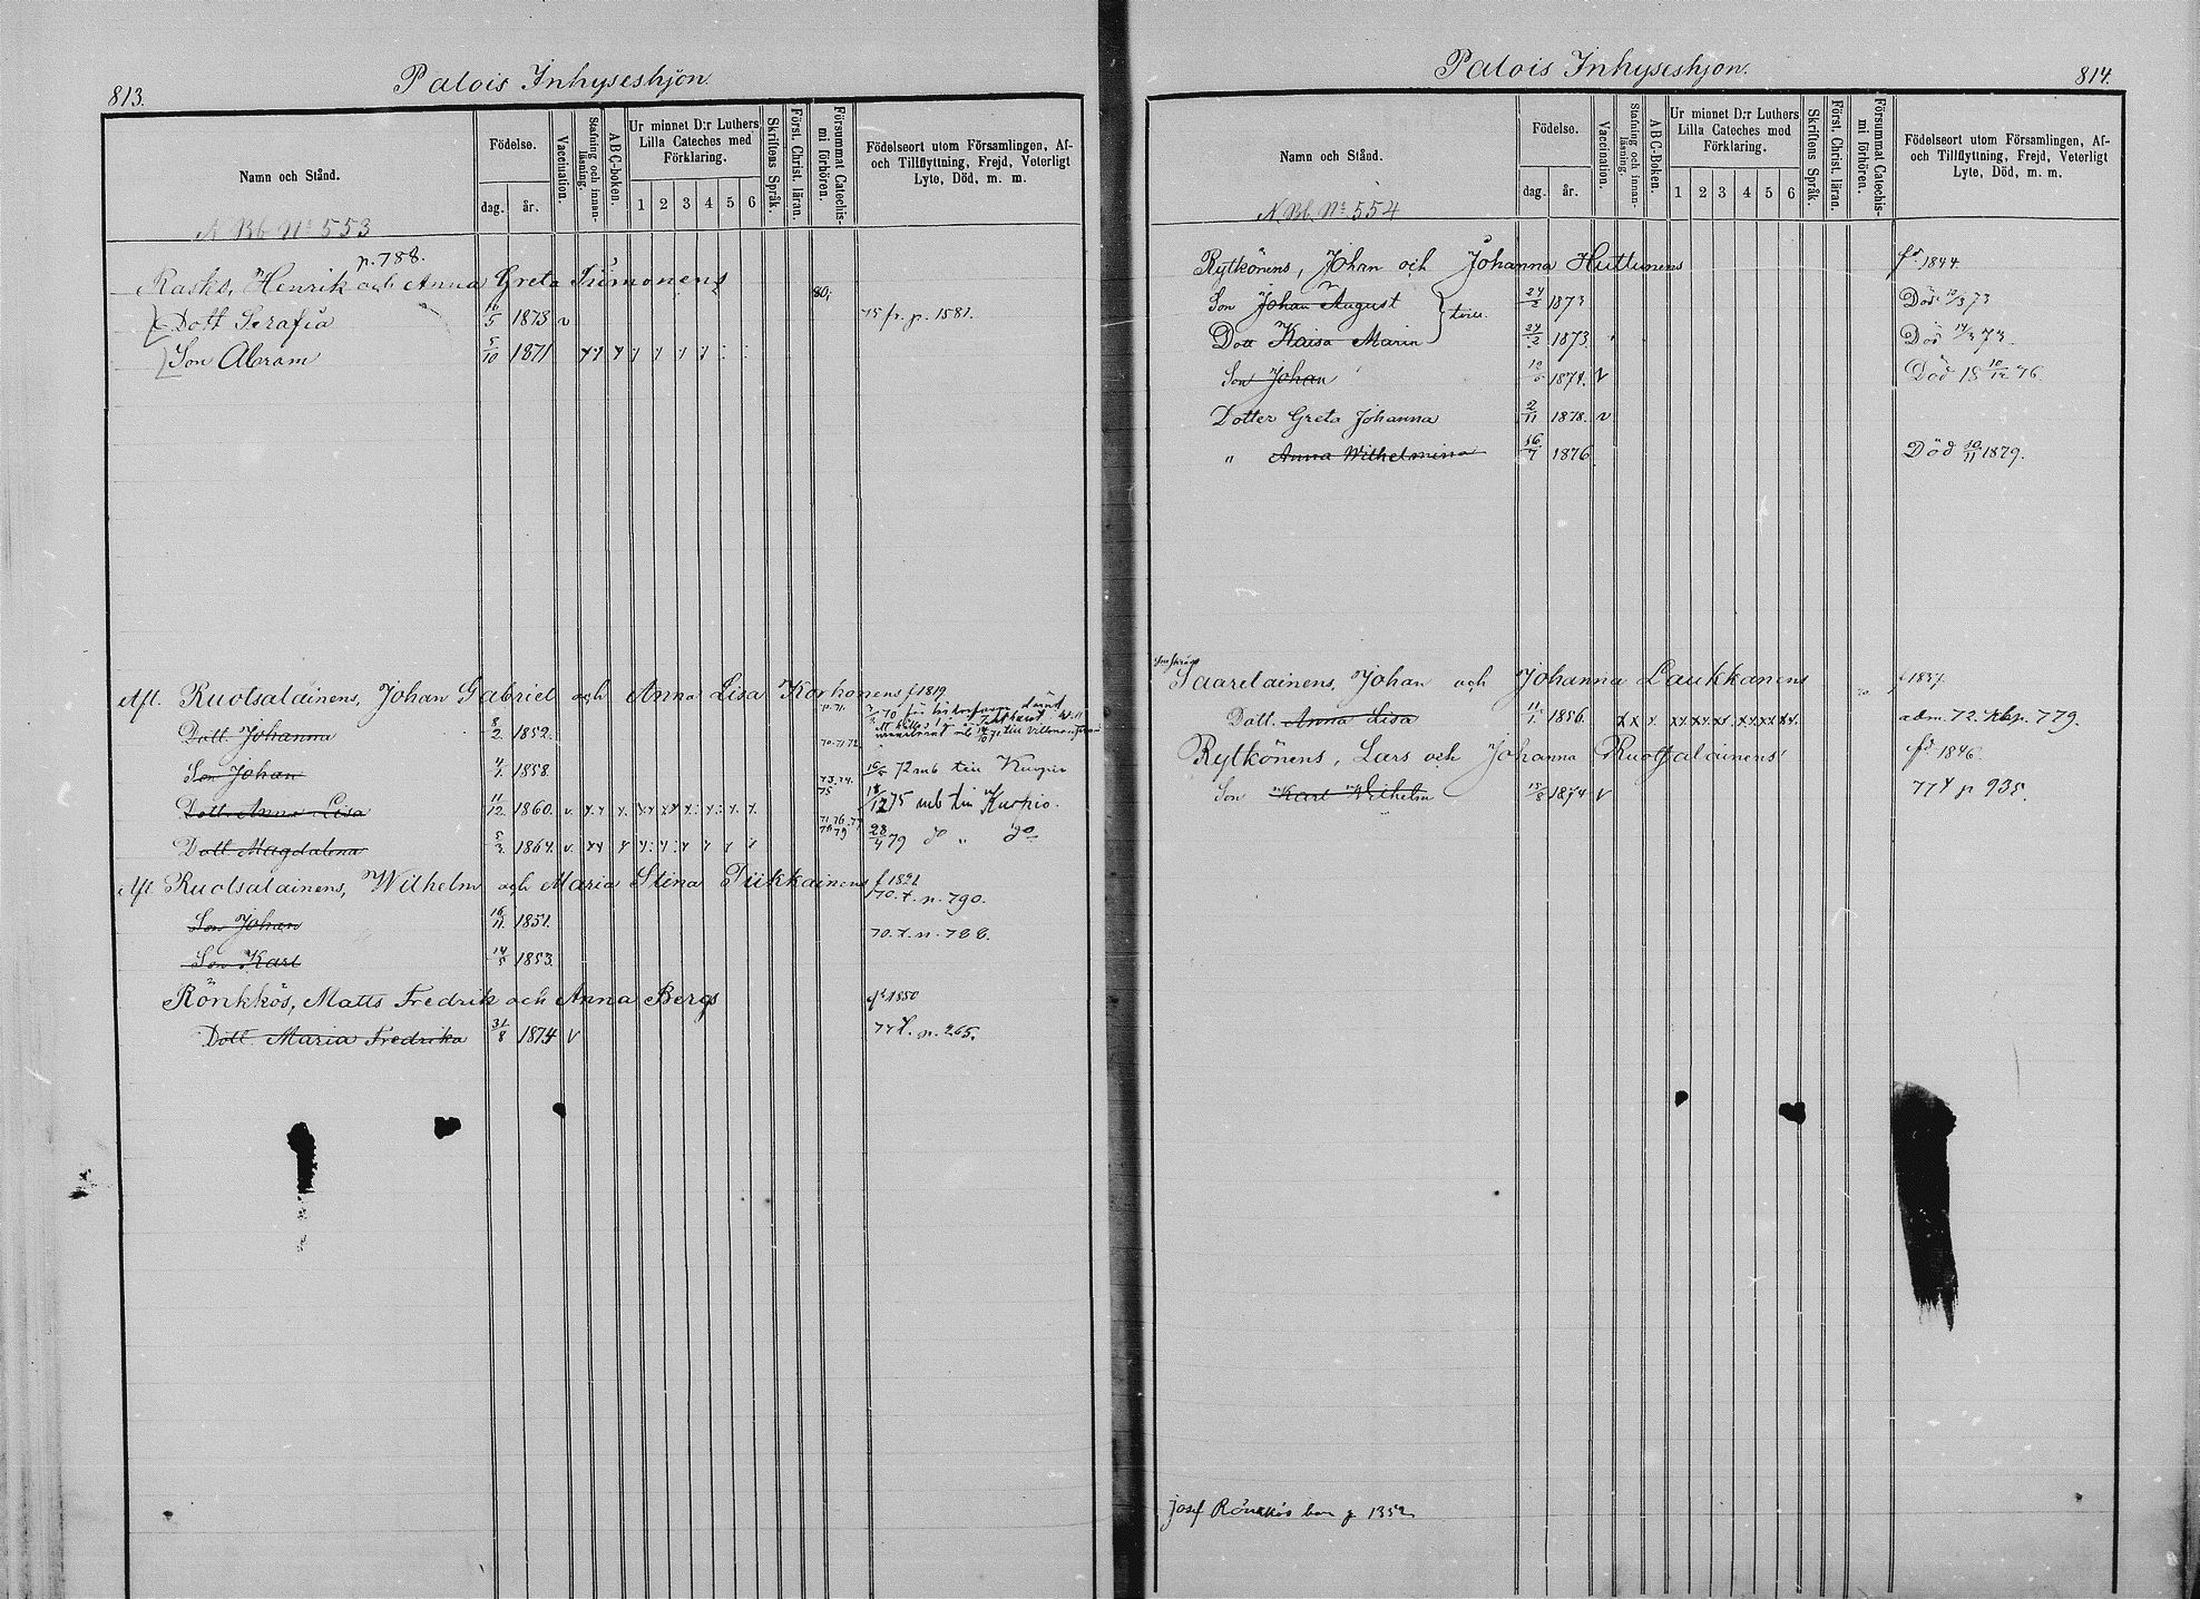 813.
Palois Inhyseshjon.
Namn och Stånd.
Födelse.
dag. år.
Vaccination.
Stafning och innanläsning.
ABC-boken.
Ur minnet D:r Luthers Lilla Cateches med Förklaring.
1 2 3 4 5 6
Skriftens Språk.
Först. Christ. läran.
Försummat Catechismi förhören.
Födelseort utom Församlingen, Af- och Tillflyttning, Frejd, Veterligt Lyte, Död, m. m.
N Bb No 553
p. 788.
Rasks, Henrik och Anna Greta Tiimonens 80,
Dott Serafia 16/5 1873 v 75 fr. p. 1581.
Son Abram 5/10 1871
Afl. Ruotsalainens, Johan Gabriel och Anna Lisa Korhonens f 1819
Dott. Johanna 8/2. 1852.
70. 71 72
Son Johan 4/1. 1858. 16/5 72 mb till Kuopio
73. 74. 75
Dott. Anna Lisa 11/12. 1860. v. 18/12 75 mb till Kuopio.
Dott. Magdalena 5/3. 1864. v. 28/4 79 do " do
Afl Ruotsalainens, Wilhelm och Maria Stina Tiikkainens f 1821
70. t. p. 790.
Son Johan 16/11. 1851.
70. t. p. 788.
Son Karl 14/5 1853.
Rönkkös, Matts Fredrik och Anna Bergs fd 1850
Dott. Maria Fredrika 31/8 1874 v 77 t. p. 265.
Palois Inhyseshjon.
814.
Namn och Stånd.
Födelse.
dag. år.
Vaccination.
Stafning och innanläsning.
ABC-Boken.
Ur minnet D:r Luthers Lilla Cateches med Förklaring.
1 2 3 4 5 6
Skriftens Språk.
Först. Christ. läran.
Försummat Catechismi förhören.
Födelseort utom Församlingen, Af- och Tillflyttning, Frejd, Veterligt Lyte, Död, m. m.
N Bb. No 554
Rytkönens, Johan och Johanna Huttunens fd 1844.
Son Johan August 24/2 1873 Död 12/3 73
tvill.
Dott Kaisa Maria 24/2 1873 Död 14/3 73.
Son Johan 1874. v Död 18 10/12 76.
Dotter Greta Johanna 2/11 1878. v
" Anna Wilhelmina 16/7 1876 Död 30/11 1879.
Saarelainens, Johan och Johanna Laukkanens f 1837.
Dott. Anna Lisa 11/1. 1856. x x x. adm. 72. Kbp. 779.
Rytkönens, Lars och Johanna Ruotsalainens fd 1846.
Son Karl Wilhelm 15/8 1874 v 77 t p 935.
Josef Rönkkös barn p 1352